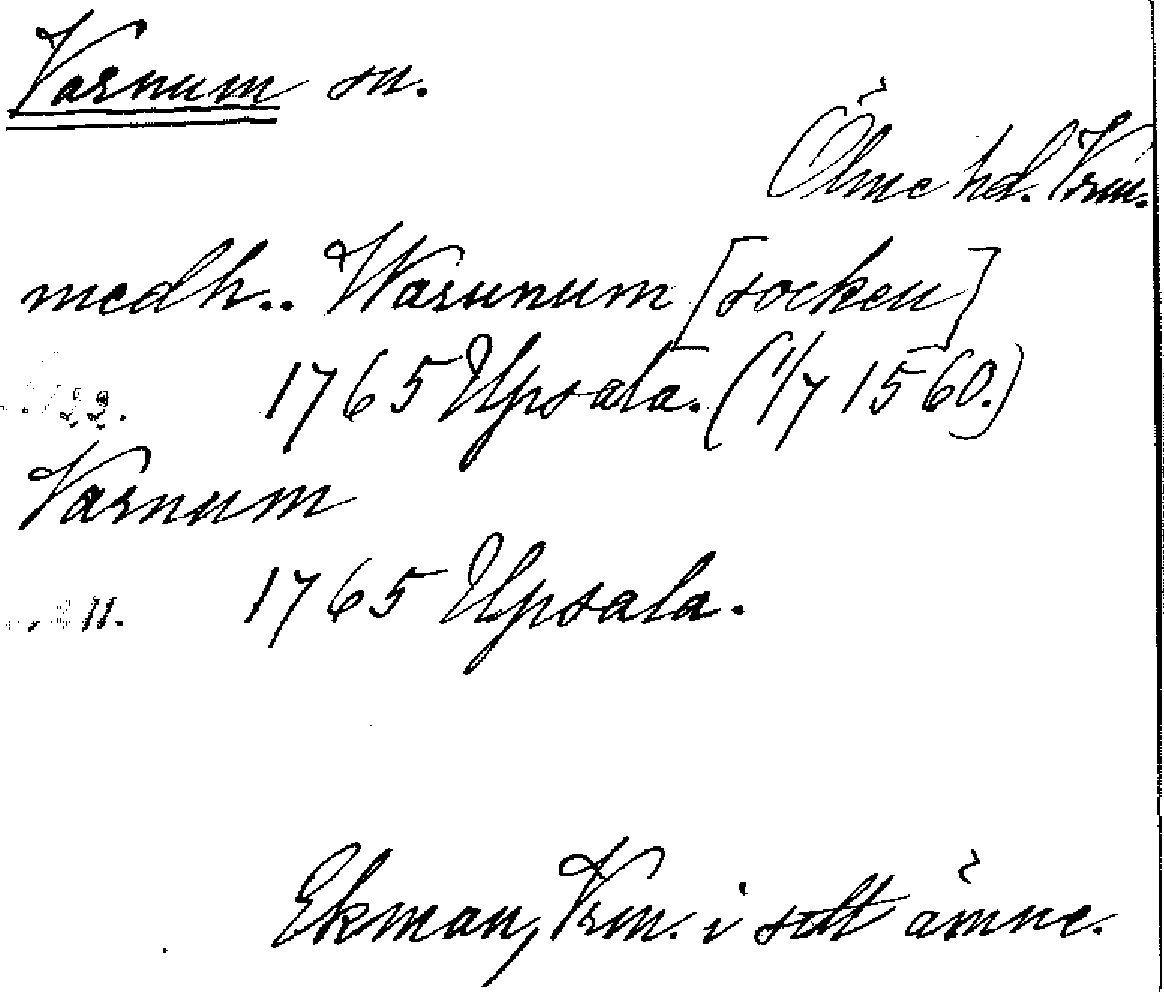 Varnum sn.
Ölme hd. Vrm.
medh.. Warunum [socken]
1765 Upsala. (1/7 1560.)
Varnum
1765 Upsala.
11.
Ekman, Vrm. i sitt ämne.